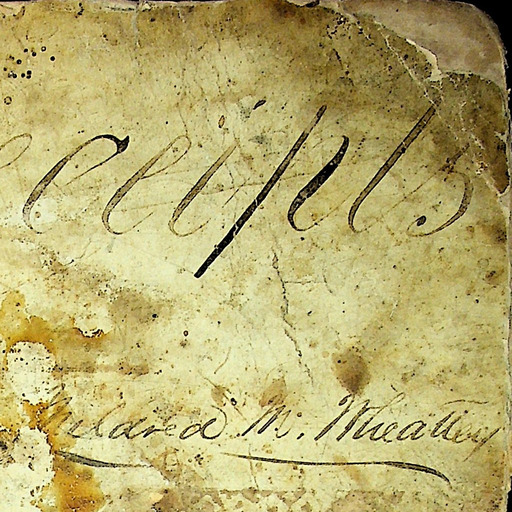 eceipts
Mildred M. Wheatley